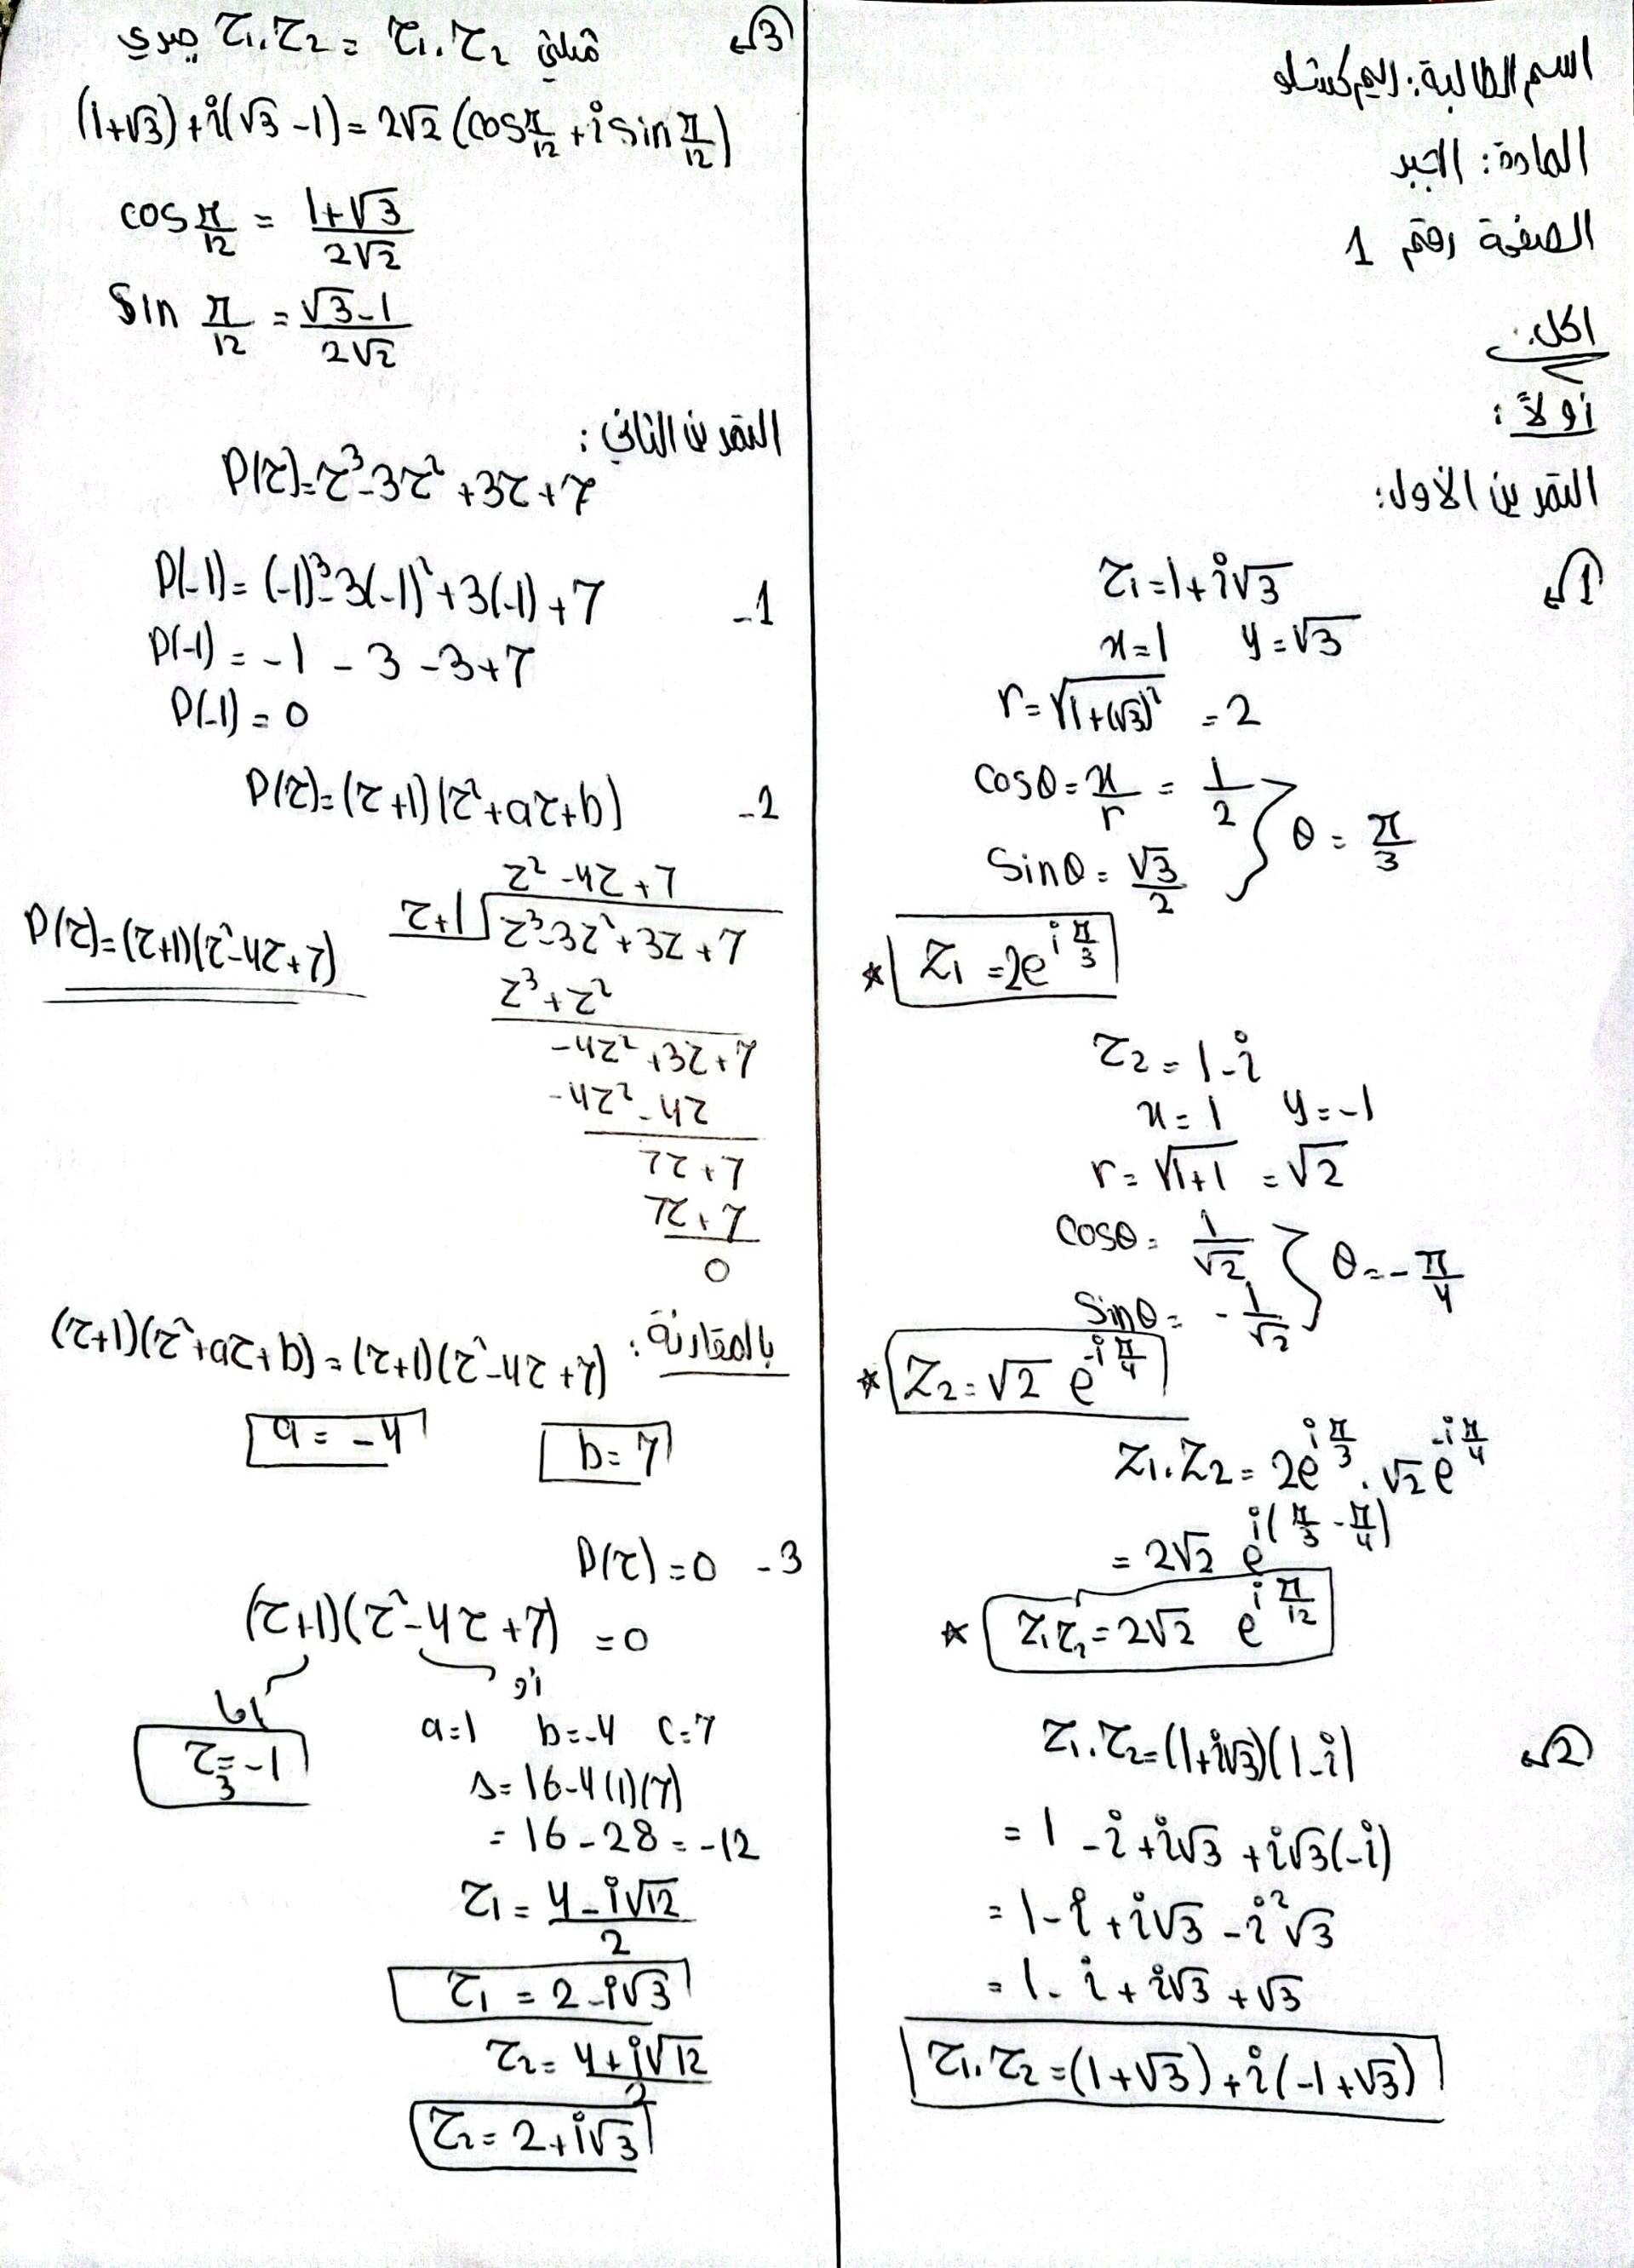 اسم الطالبة: ريم كشلو
المادة: الجبر
الصفحة رقم 1
الحل:
أولاً:
التمرين الأول:
1
z₁=1+i√3
x=1 y=√3
r=√(1+(√3)²) =2
cosθ=x/r = 1/2
sinθ=√3/2
θ=π/3
* z₁=2e^(iπ/3)
z₂=1-i
x=1 y=-1
r=√(1+1) =√2
cosθ=1/√2
sinθ=-1/√2
θ=-π/4
* z₂=√2 e^(-iπ/4)
z₁.z₂=2e^(iπ/3).√2e^(-iπ/4)
=2√2 e^(i(π/3-π/4))
* z₁z₂=2√2 e^(iπ/12)
2
z₁.z₂=(1+i√3)(1-i)
=1-i+i√3+i√3(-i)
=1-i+i√3-i²√3
=1-i+i√3+√3
z₁.z₂=(1+√3)+i(-1+√3)
3
مثلثي z₁.z₂ = z₁.z₂ جبري
(1+√3)+i(√3-1)=2√2(cosπ/12+i sinπ/12)
cos π/12 = (1+√3)/(2√2)
sin π/12 = (√3-1)/(2√2)
التمرين الثاني:
P(z)=z³-3z²+3z+7
-1
P(-1)=(-1)³-3(-1)²+3(-1)+7
P(-1)=-1-3-3+7
P(-1)=0
-2
P(z)=(z+1)(z²+az+b)
z²-4z+7
z+1 z³-3z²+3z+7
z³+z²
-4z²+3z+7
-4z²-4z
7z+7
7z+7
0
P(z)=(z+1)(z²-4z+7)
بالمقارنة: (z+1)(z²+az+b)=(z+1)(z²-4z+7)
a=-4 b=7
P(z)=0 -3
(z+1)(z²-4z+7)=0
إما
z₃=-1
أو
a=1 b=-4 c=7
Δ=16-4(1)(7)
=16-28=-12
z₁=(4-i√12)/2
z₁=2-i√3
z₂=(4+i√12)/2
z₂=2+i√3